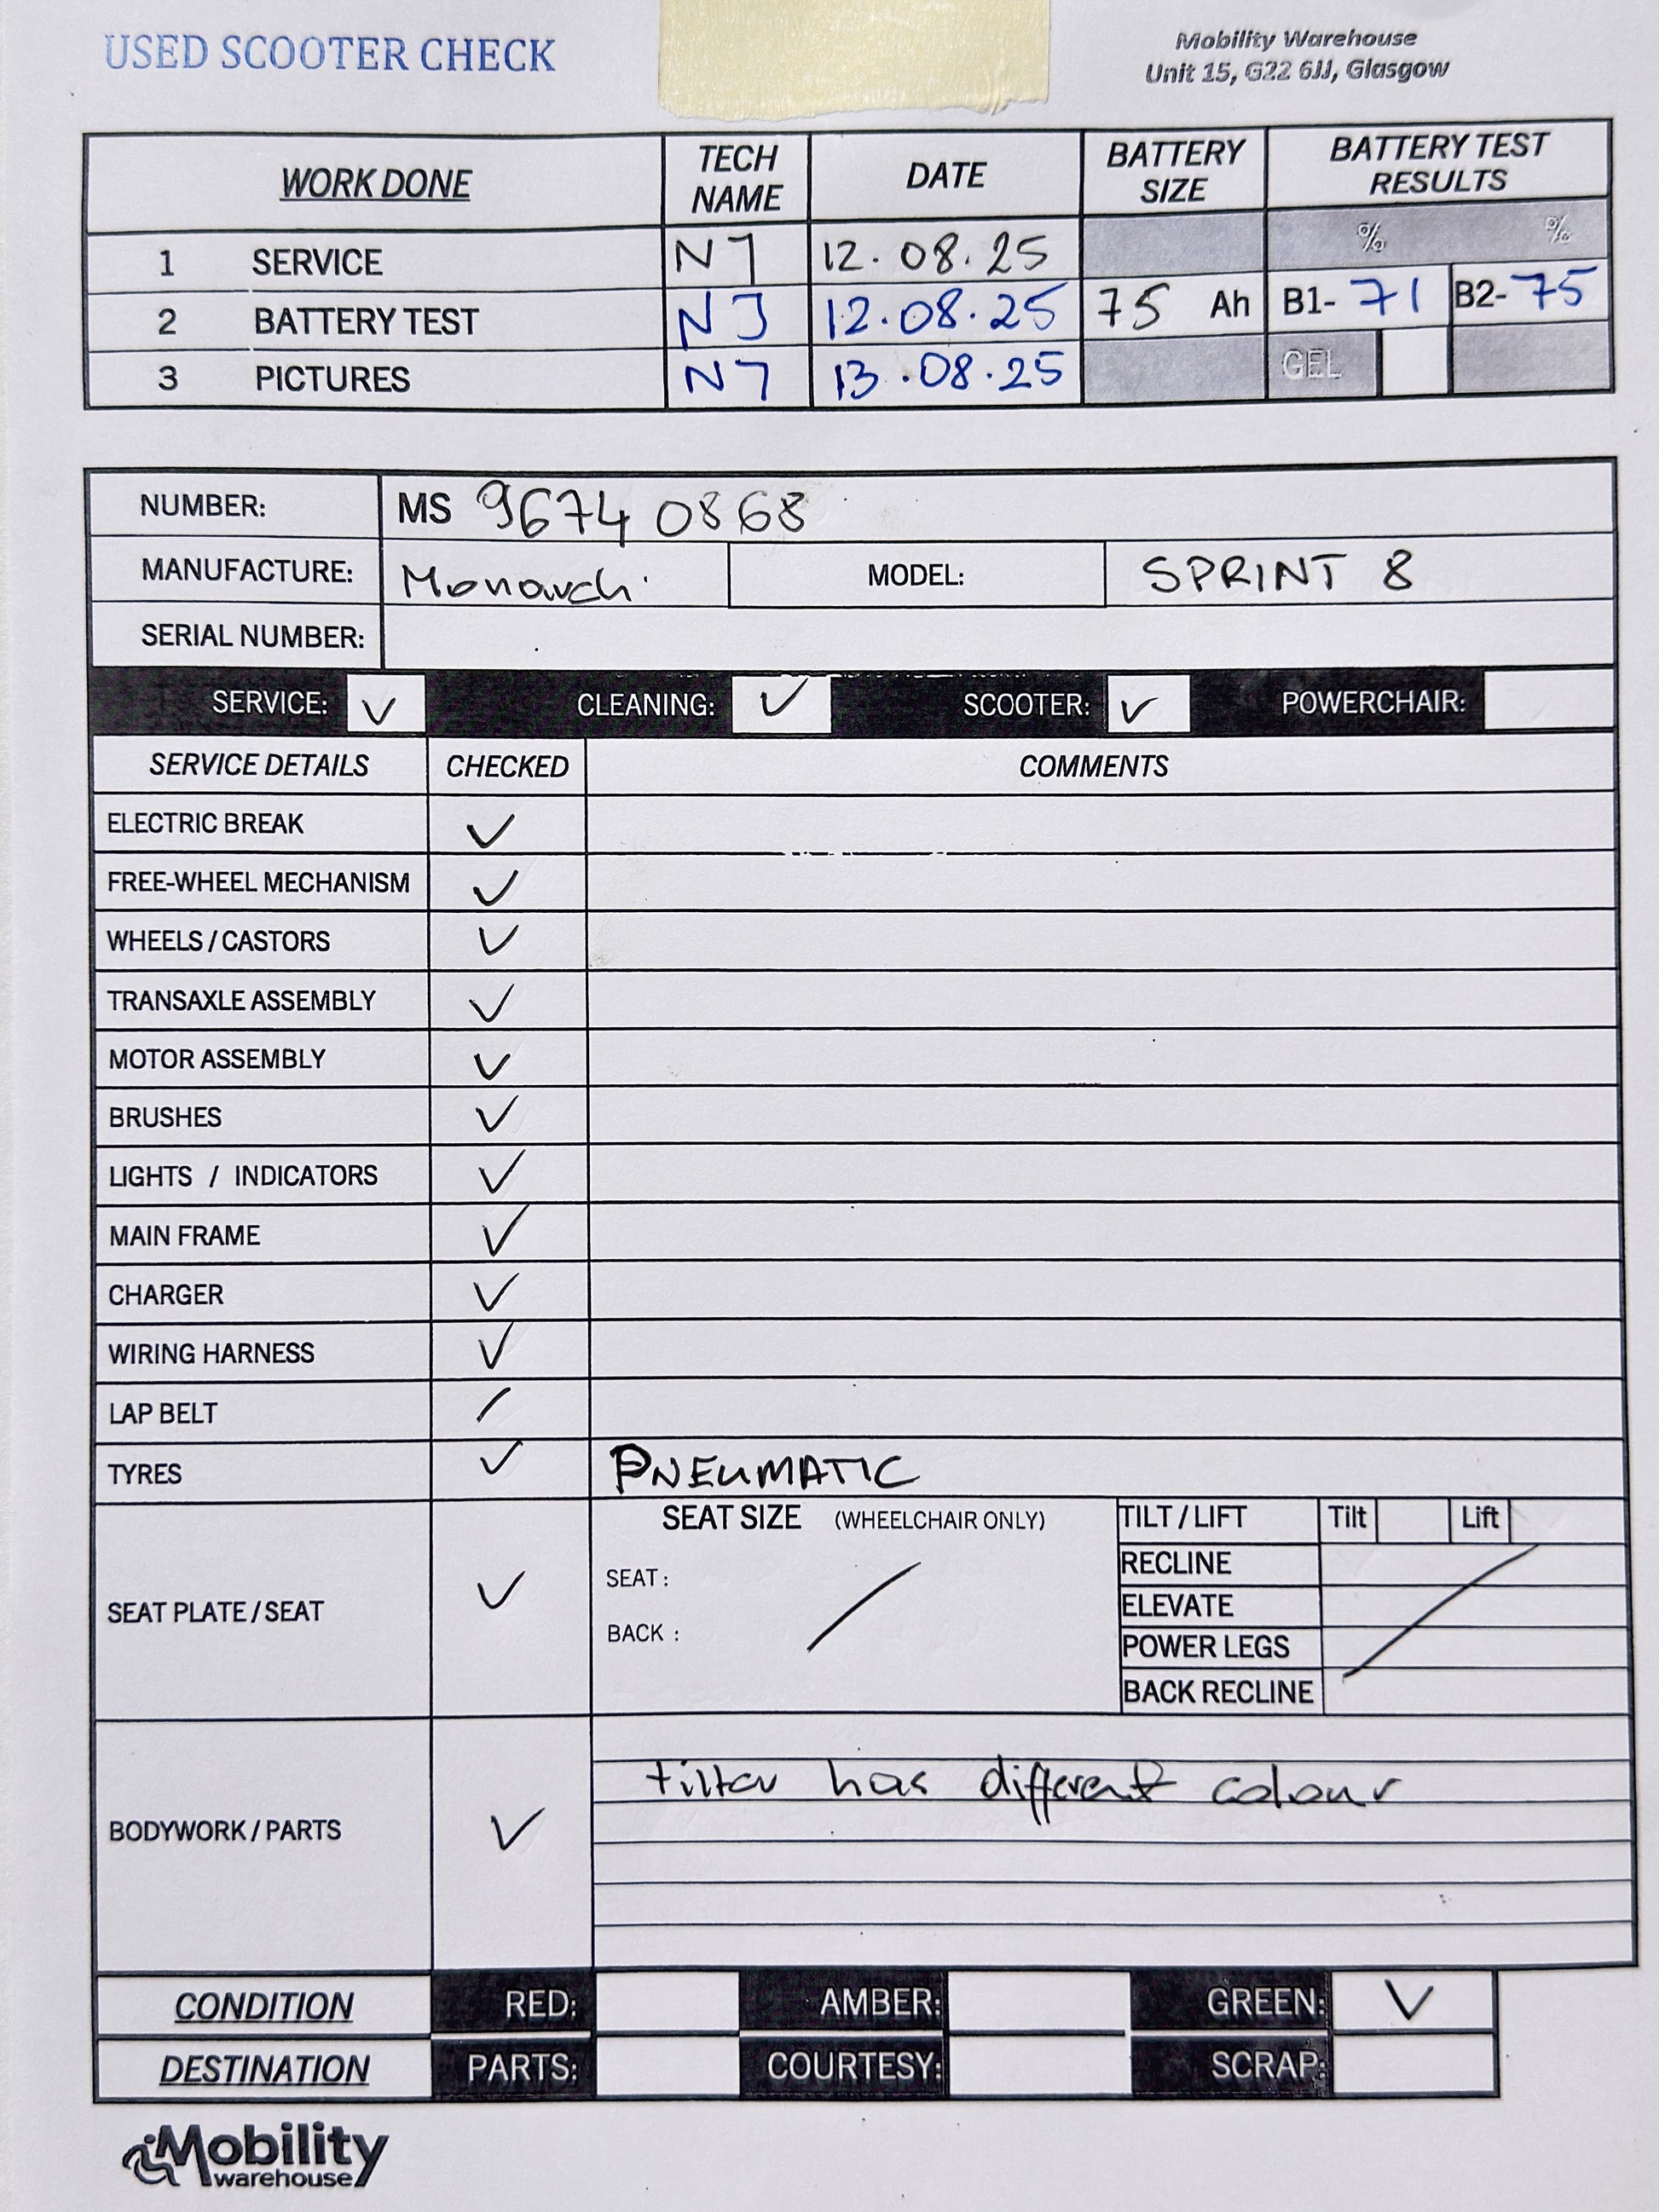 USED SCOOTER CHECK
Mobility Warehouse
Unit 15, G22 6JJ, Glasgow
WORK DONE TECH NAME DATE BATTERY SIZE BATTERY TEST RESULTS
% %
1 SERVICE NJ 12.08.25
2 BATTERY TEST NJ 12.08.25 75 Ah B1- 71 B2- 75
3 PICTURES NJ 13.08.25 GEL
NUMBER: MS 96740868
MANUFACTURE: Monarch MODEL: SPRINT 8
SERIAL NUMBER:
SERVICE: ✓ CLEANING: ✓ SCOOTER: ✓ POWERCHAIR:
SERVICE DETAILS CHECKED COMMENTS
ELECTRIC BREAK ✓
FREE-WHEEL MECHANISM ✓
WHEELS / CASTORS ✓
TRANSAXLE ASSEMBLY ✓
MOTOR ASSEMBLY ✓
BRUSHES ✓
LIGHTS / INDICATORS ✓
MAIN FRAME ✓
CHARGER ✓
WIRING HARNESS ✓
LAP BELT /
TYRES ✓ PNEUMATIC
SEAT PLATE / SEAT ✓
SEAT SIZE (WHEELCHAIR ONLY)
SEAT : /
BACK :
TILT / LIFT Tilt Lift
RECLINE
ELEVATE
POWER LEGS
BACK RECLINE
BODYWORK / PARTS ✓ tiller has different colour
CONDITION RED: AMBER: GREEN: ✓
DESTINATION PARTS: COURTESY: SCRAP:
Mobility
warehouse